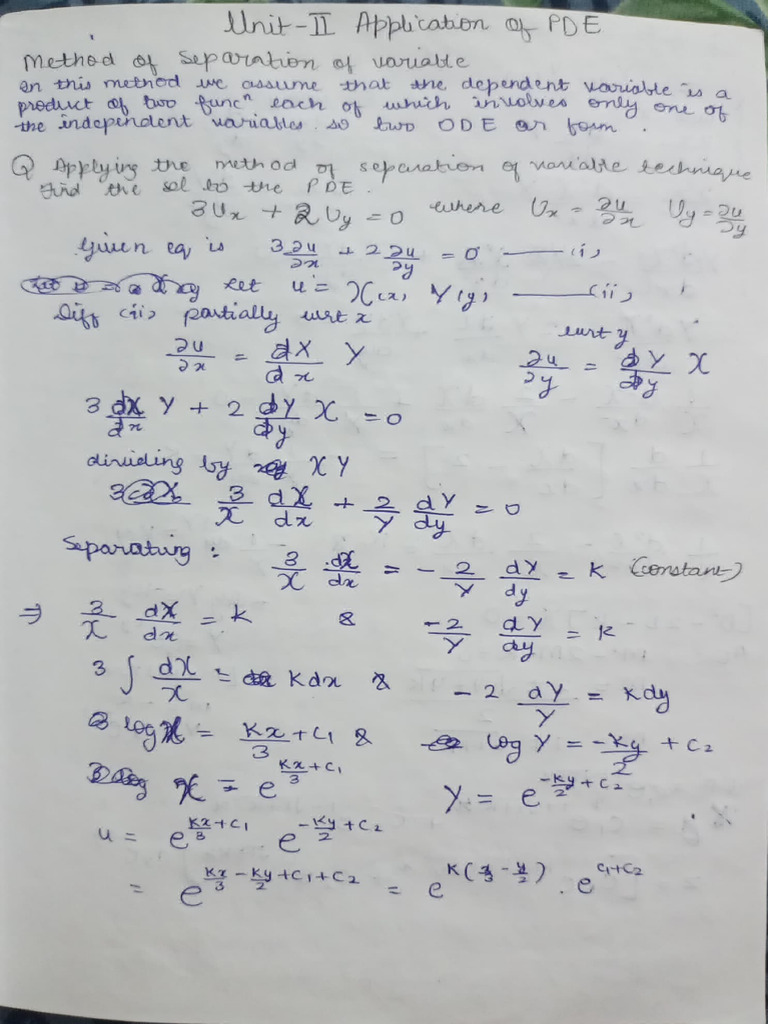 Unit-II Application of PDE
Method of Separation of variable
In this method we assume that the dependent variable is a
product of two funcⁿ each of which involves only one of
the independent variables. so two ODE ar form.
Q Applying the method of separation of variable technique
Find the sol to the PDE.
3Ux + 2Uy = 0 where Ux = ∂u/∂x Uy = ∂u/∂y
Given eq is 3 ∂u/∂x + 2 ∂u/∂y = 0 —— (i)
Let u = X(x) Y(y) —— (ii)
Diff (ii) partially wrt x
wrt y
∂u/∂x = dX/dx Y ∂u/∂y = dY/dy X
3 dX/dx Y + 2 dY/dy X = 0
dividing by XY
3/X dX/dx + 2/Y dY/dy = 0
Separating : 3/X dX/dx = - 2/Y dY/dy = K (constant)
⇒ 3/X dX/dx = K & -2/Y dY/dy = K
3 ∫ dX/X = Kdx & -2 dY/Y = Kdy
log X = Kx/3 + C1 & log Y = -Ky/2 + C2
X = e^(Kx/3 + C1) Y = e^(-Ky/2 + C2)
u = e^(Kx/3 + C1) e^(-Ky/2 + C2)
= e^(Kx/3 - Ky/2 + C1 + C2) = e^(K(x/3 - y/2)) . e^(C1+C2)